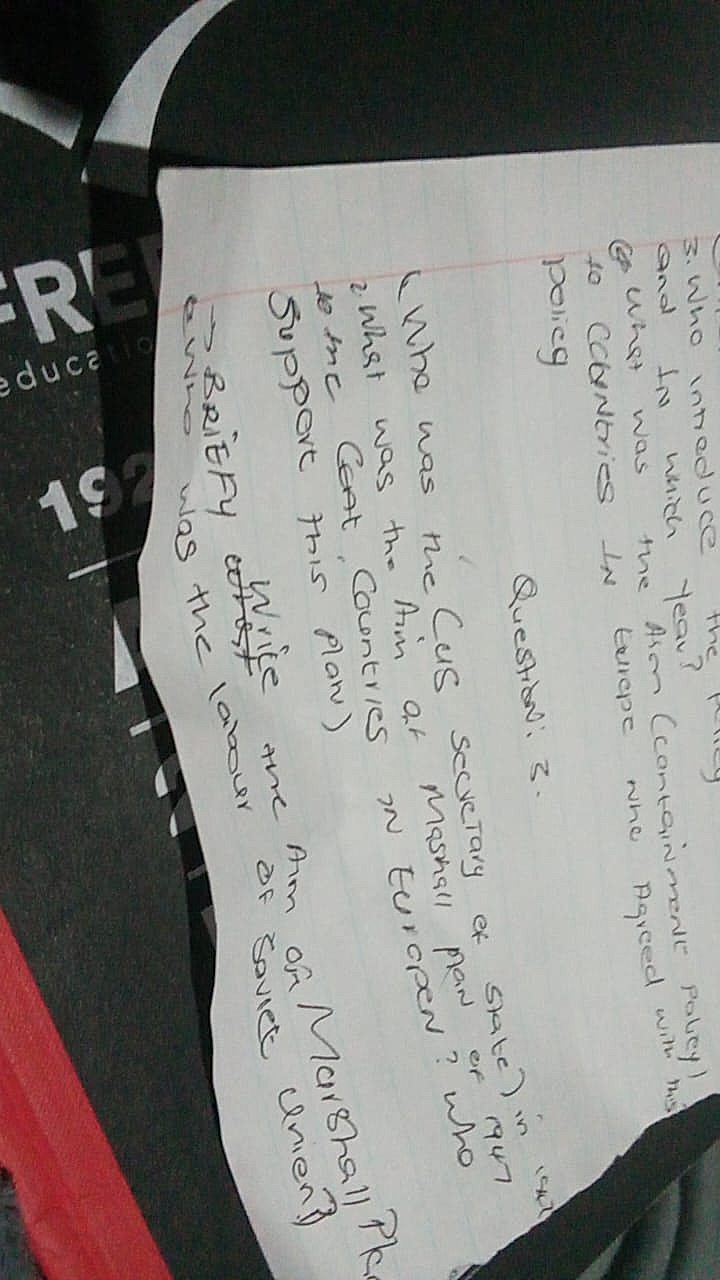 the Policy
3. Who introduce
and IN which Year?
What was the Aim (containment Policy)
to COUNtries IN Europe who Agreed with this
policy
Question: 3.
Who was the (US secretary of state) in 1947
2. What was the Aim of Mashall Plan of 1947
to the Cont. Countries IN Europen? Who
Support this plan)
→ BRIEFY Write the Aim of Marshall Pla
Who was the labour of Soviet Union?)
FREE
educatio
192